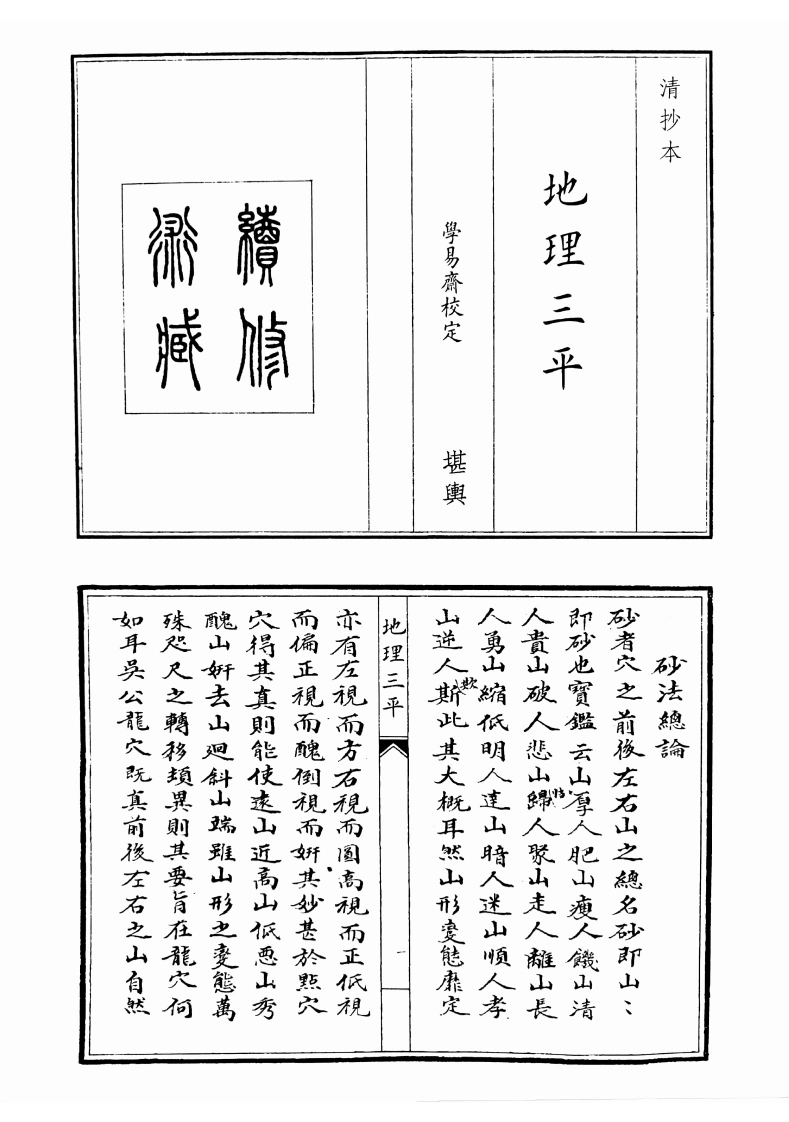 清抄本
地理三平
學易齋校定 堪輿
續修
術藏
砂法總論
砂者穴之前後左右山之總名砂即山〻
即砂也寶鑑云山厚人肥山瘦人饑山清
人貴山破人悲山歸人聚山走人離山長
人勇山縮低明人達山暗人迷山順人孝
山逆人斯欺此其大概耳然山形變態靡定
地理三平
一
亦有左視而方右視而圓高視而正低視
而偏正視而醜倒視而妍其妙甚於點穴
穴得其真則能使遠山近高山低惡山秀
醜山妍去山迴斜山端雖山形之變態萬
殊咫尺之轉移頓異則其要旨在龍穴何
如耳吳公龍穴既真前後左右之山自然